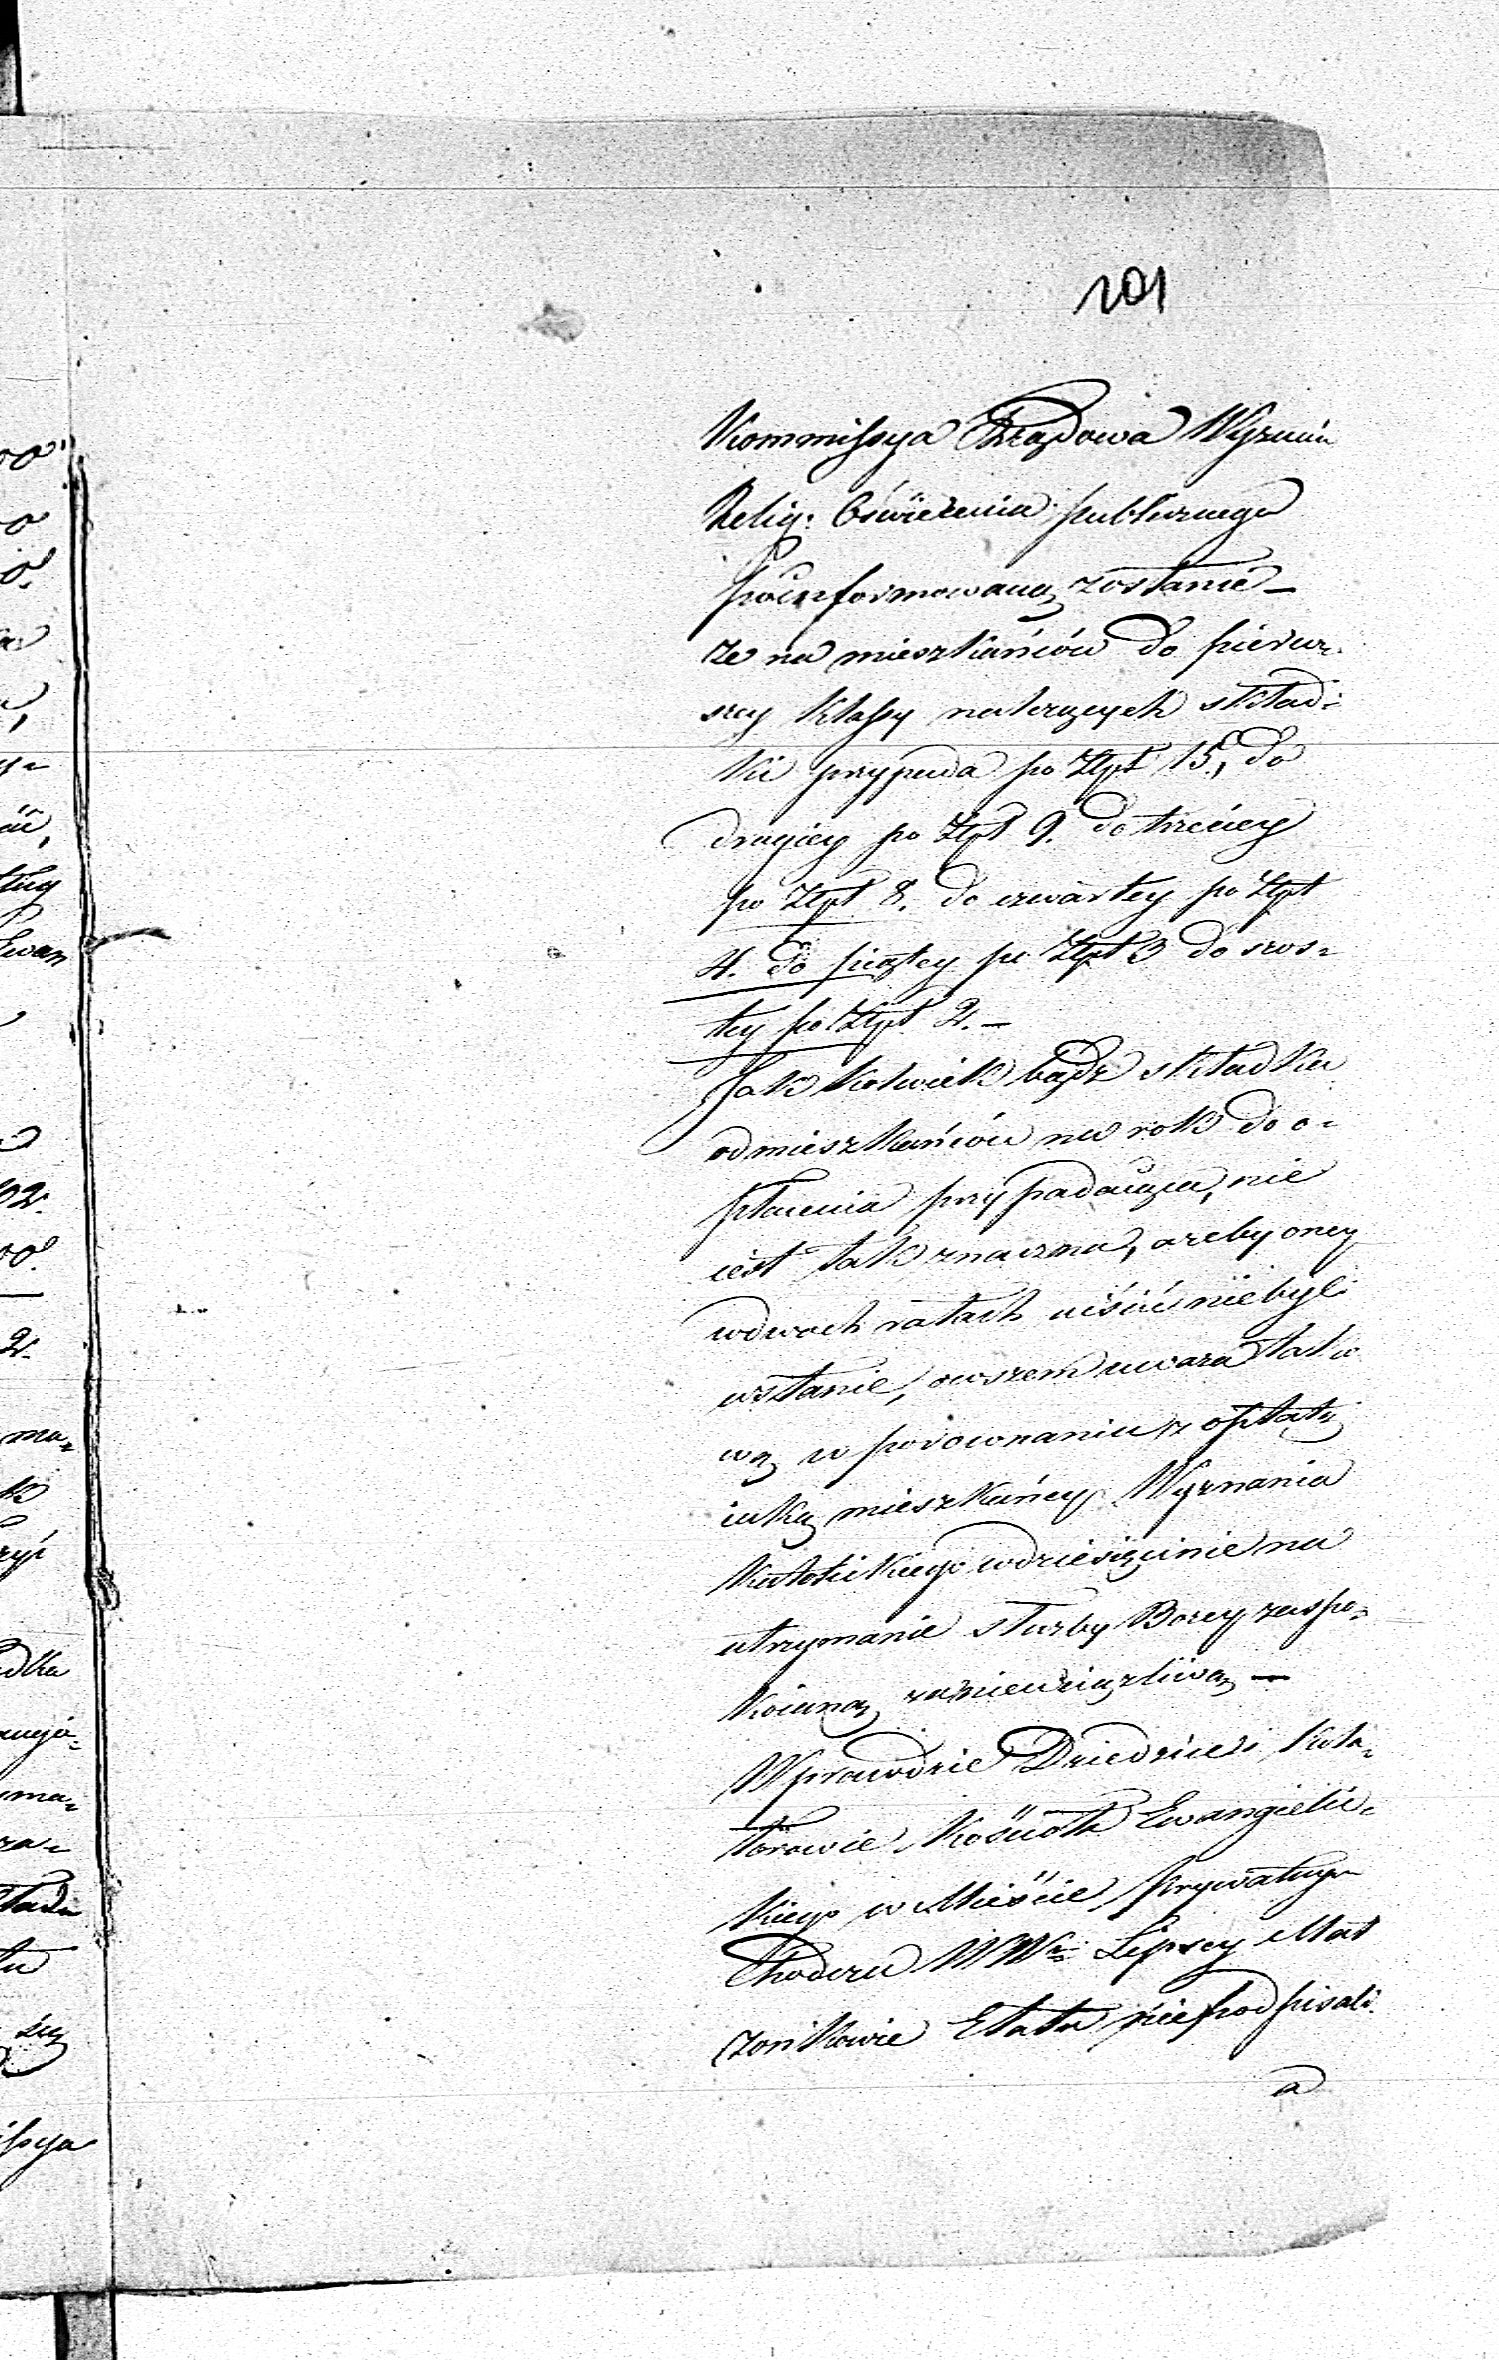 101
Kommissya Rządowa Wyznań
Relig: Oświecenia publicznego
poinformowaną zostanie —
że na mieszkańców do pierw-
szey klassy należących skład-
ki przypada po Złpl 15, do
drugiey po Złpl 9. do trzeciey
po Złpl 8. do czwartey po Złpl
4. do piątey po Złpl 3 do szos-
tey po Złpl 2. —
Jak kolwiek bądź składka
od mieszkańców na rok do o-
płacenia przypadaiąca, nie
iest tak znaczna, azeby oney
w dwoch ratach uiścić niebyli
wstanie, owszem uwaza tako
wą w porownaniu z opłatą
iaką mieszkańcy Wyznania
Katolickiego w dziesięcinie na
utrzymanie służby Bozey zaspo-
koianą
Wprawdzie Dziedzice i Kola-
torowie Kościoła Ewangielic-
kiego w Mieście prywatnym
Chodczu WWni Lipscy Mał
zonkowie Etatu nie podpisali
a